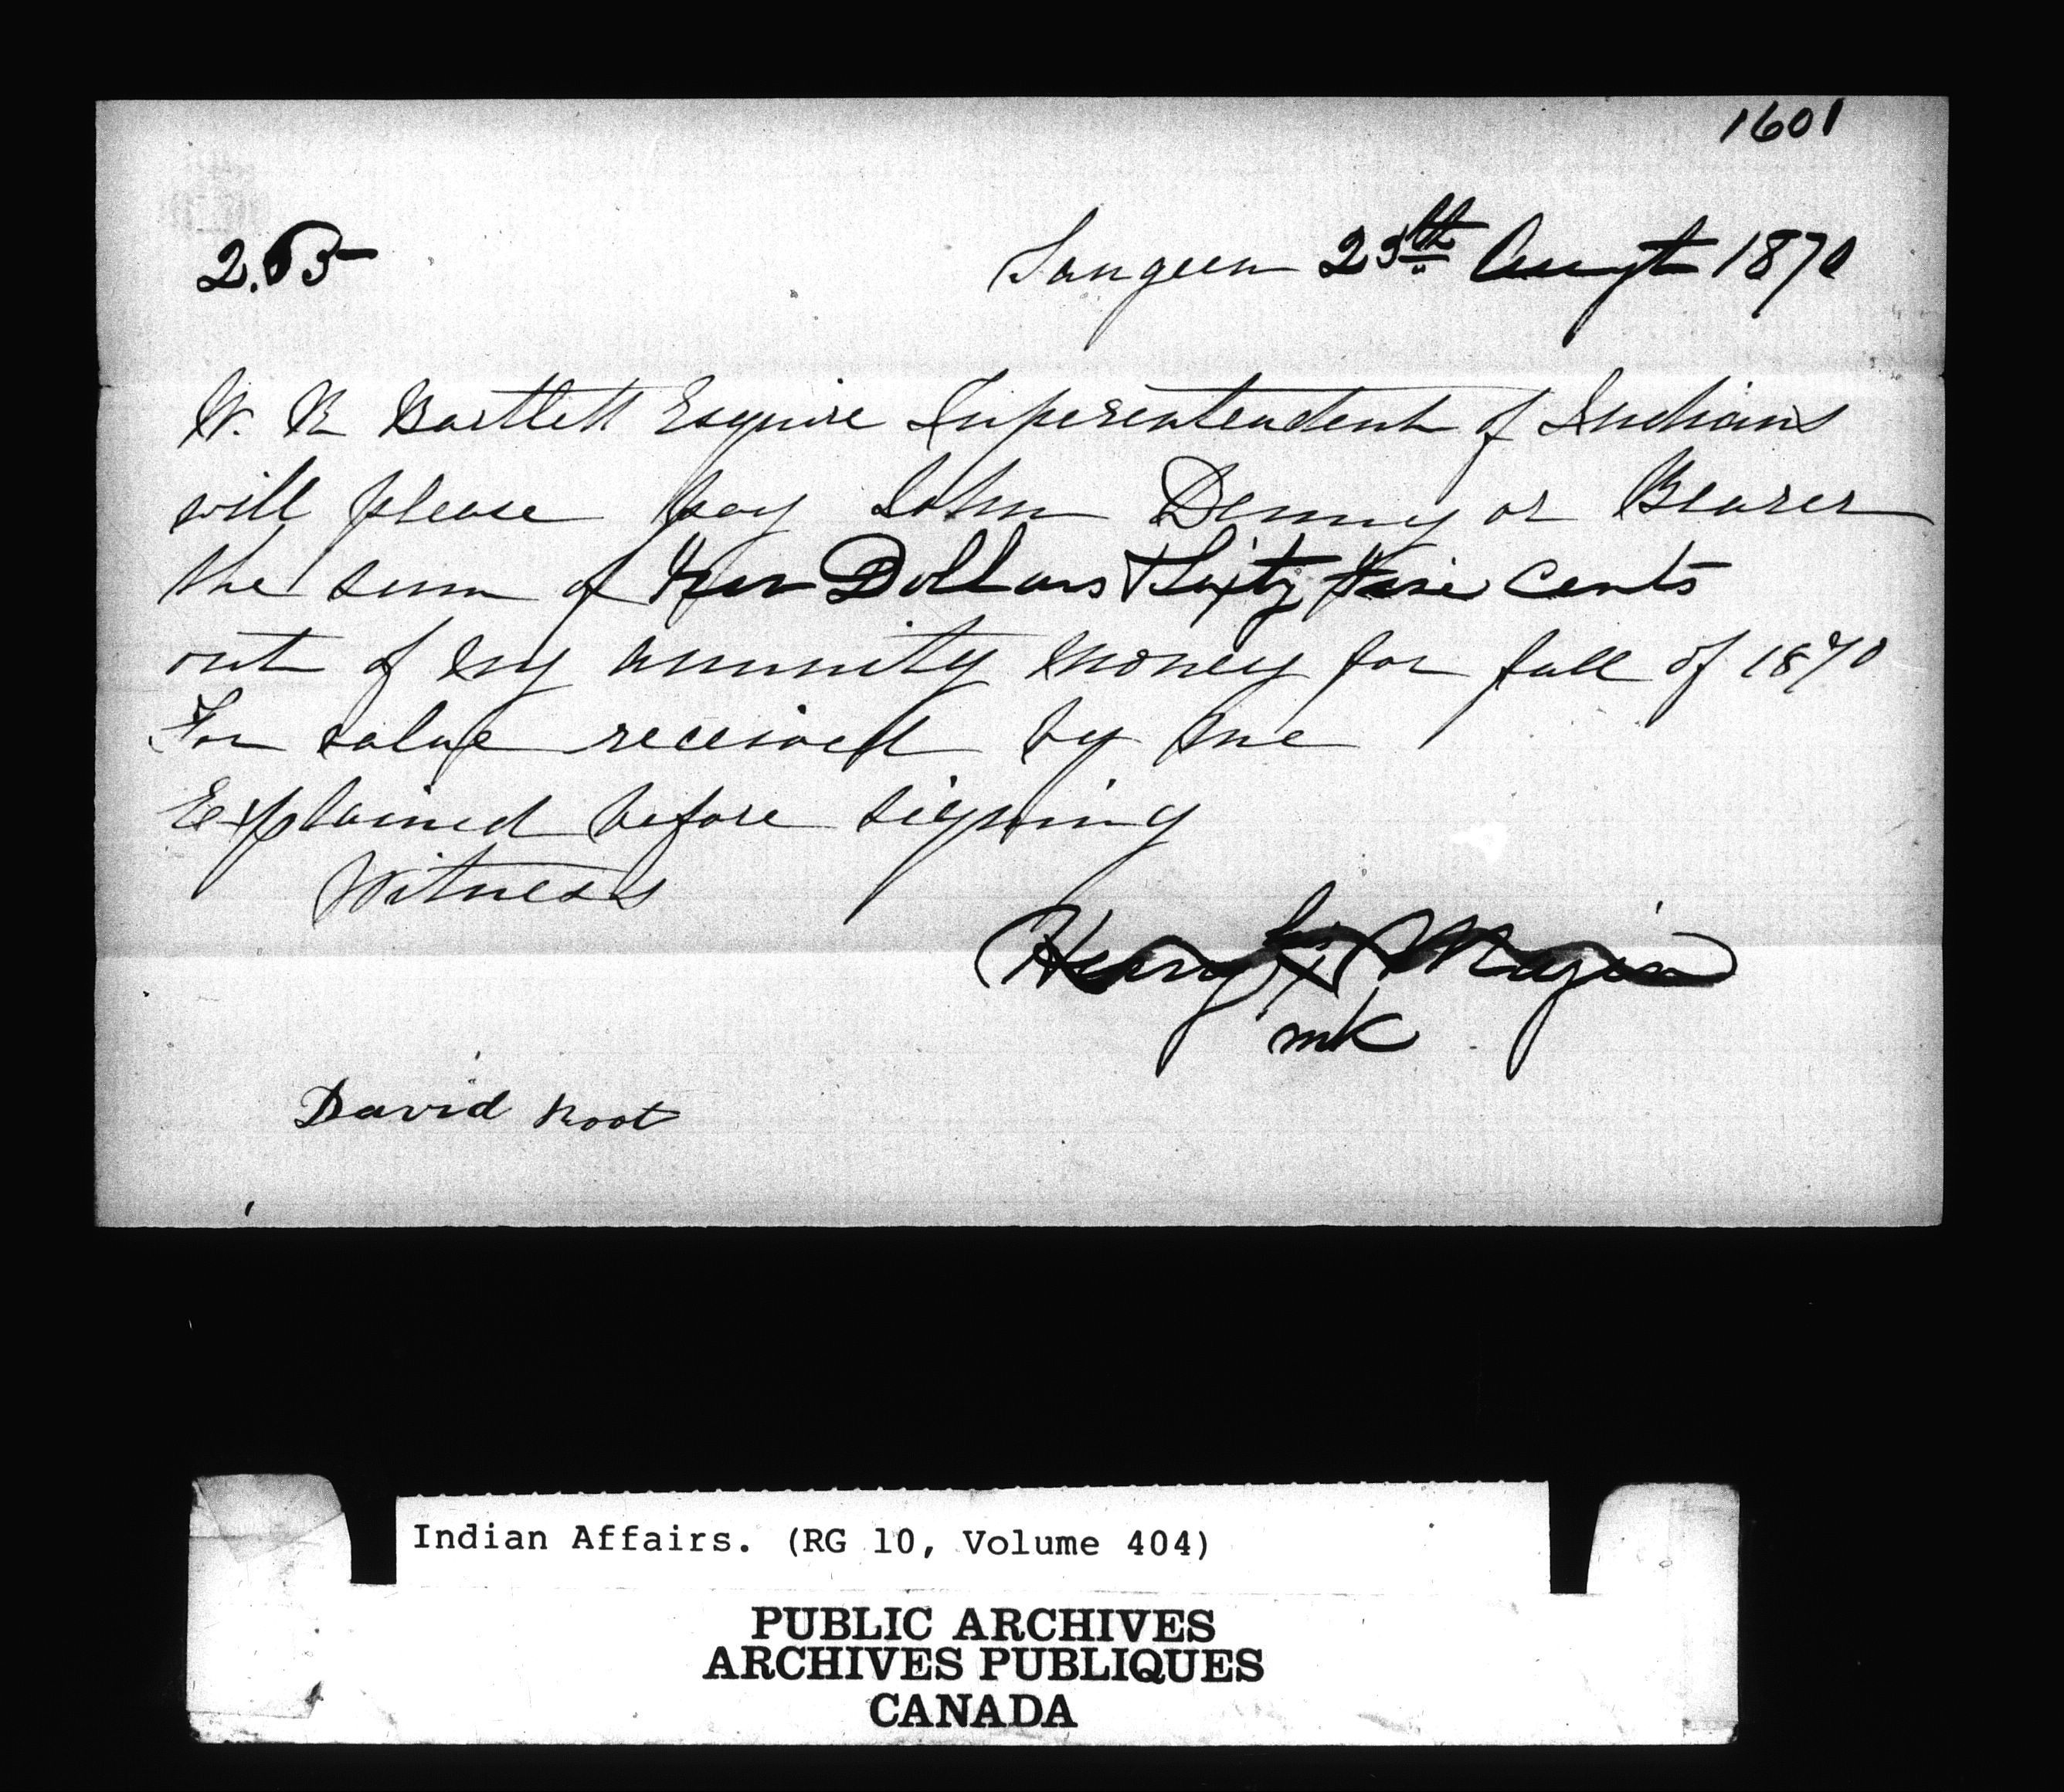 1601
2.65 Saugeen 25th Augt 1870
W. R Bartlett Esquire Superentendent of Indians
will please pay John Denny or Bearer
the sum of Two Dollars & Sixty five cents
out of my annuity money for fall of 1870
For value received by me
Explained before signing
Witness
Henry his X
mk
David Root
Indian Affairs. (RG 10, Volume 404)
PUBLIC ARCHIVES
ARCHIVES PUBLIQUES
CANADA